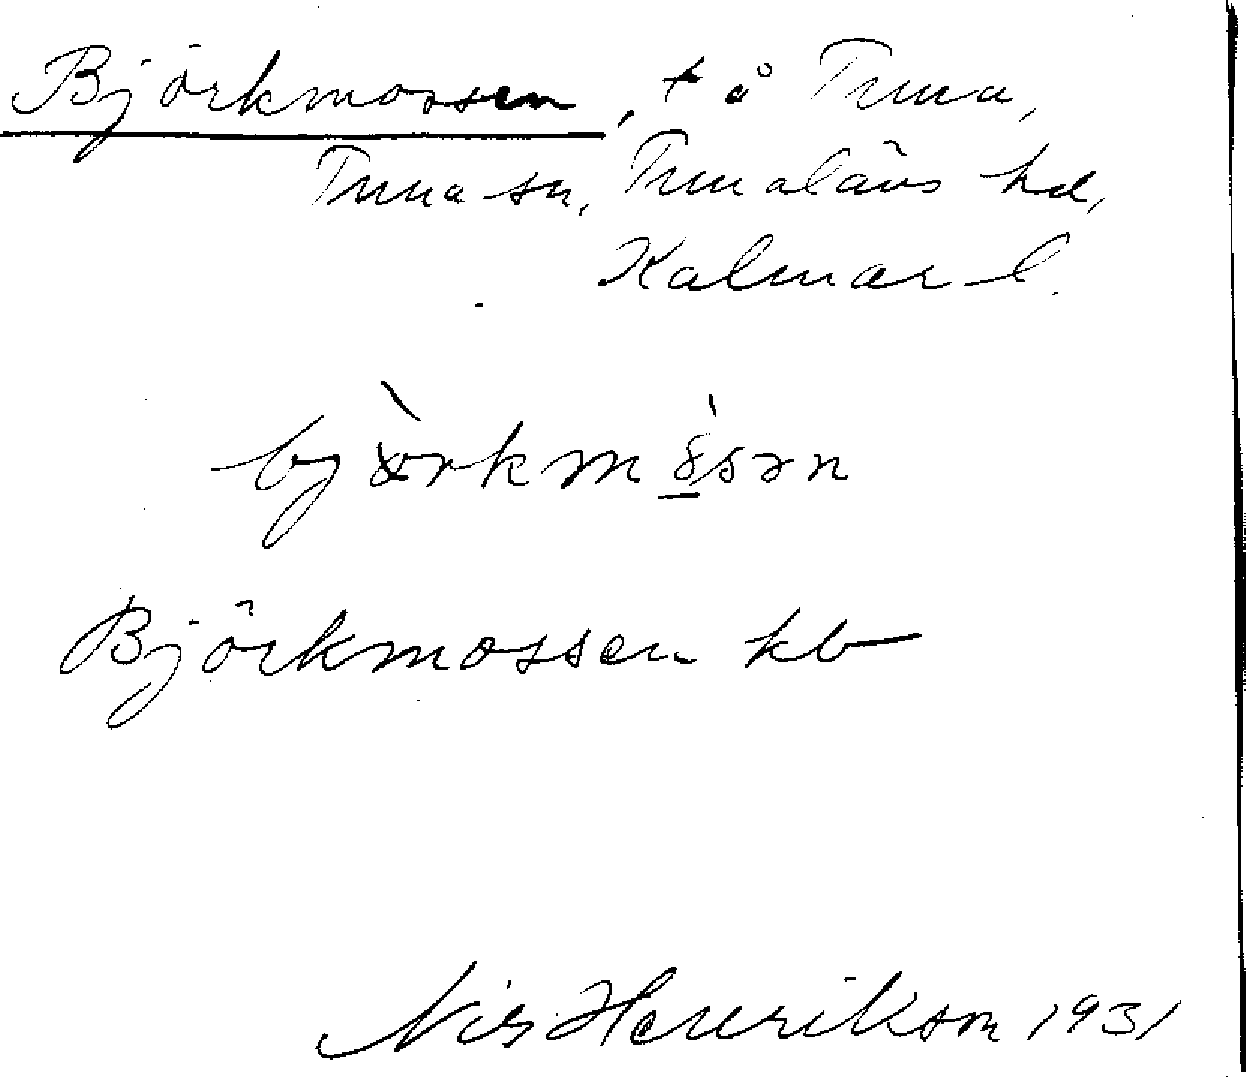 Björkmossen, t å Tuna,
Tuna sn, Tunaläns hd,
Kalmar l.
Björkmossen kb
Nils Henrikson 1931